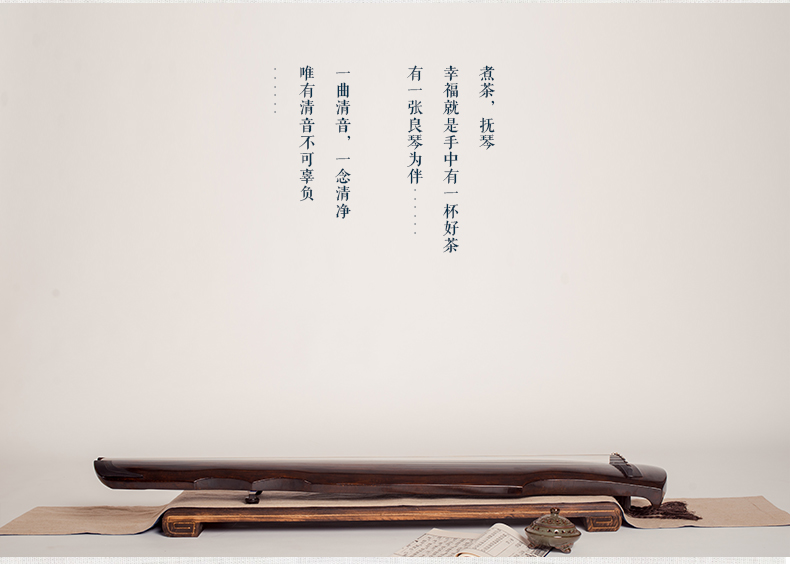 煮茶，抚琴
幸福就是手中有一杯好茶
有一张良琴为伴······
一曲清音，一念清净
唯有清音不可辜负
······